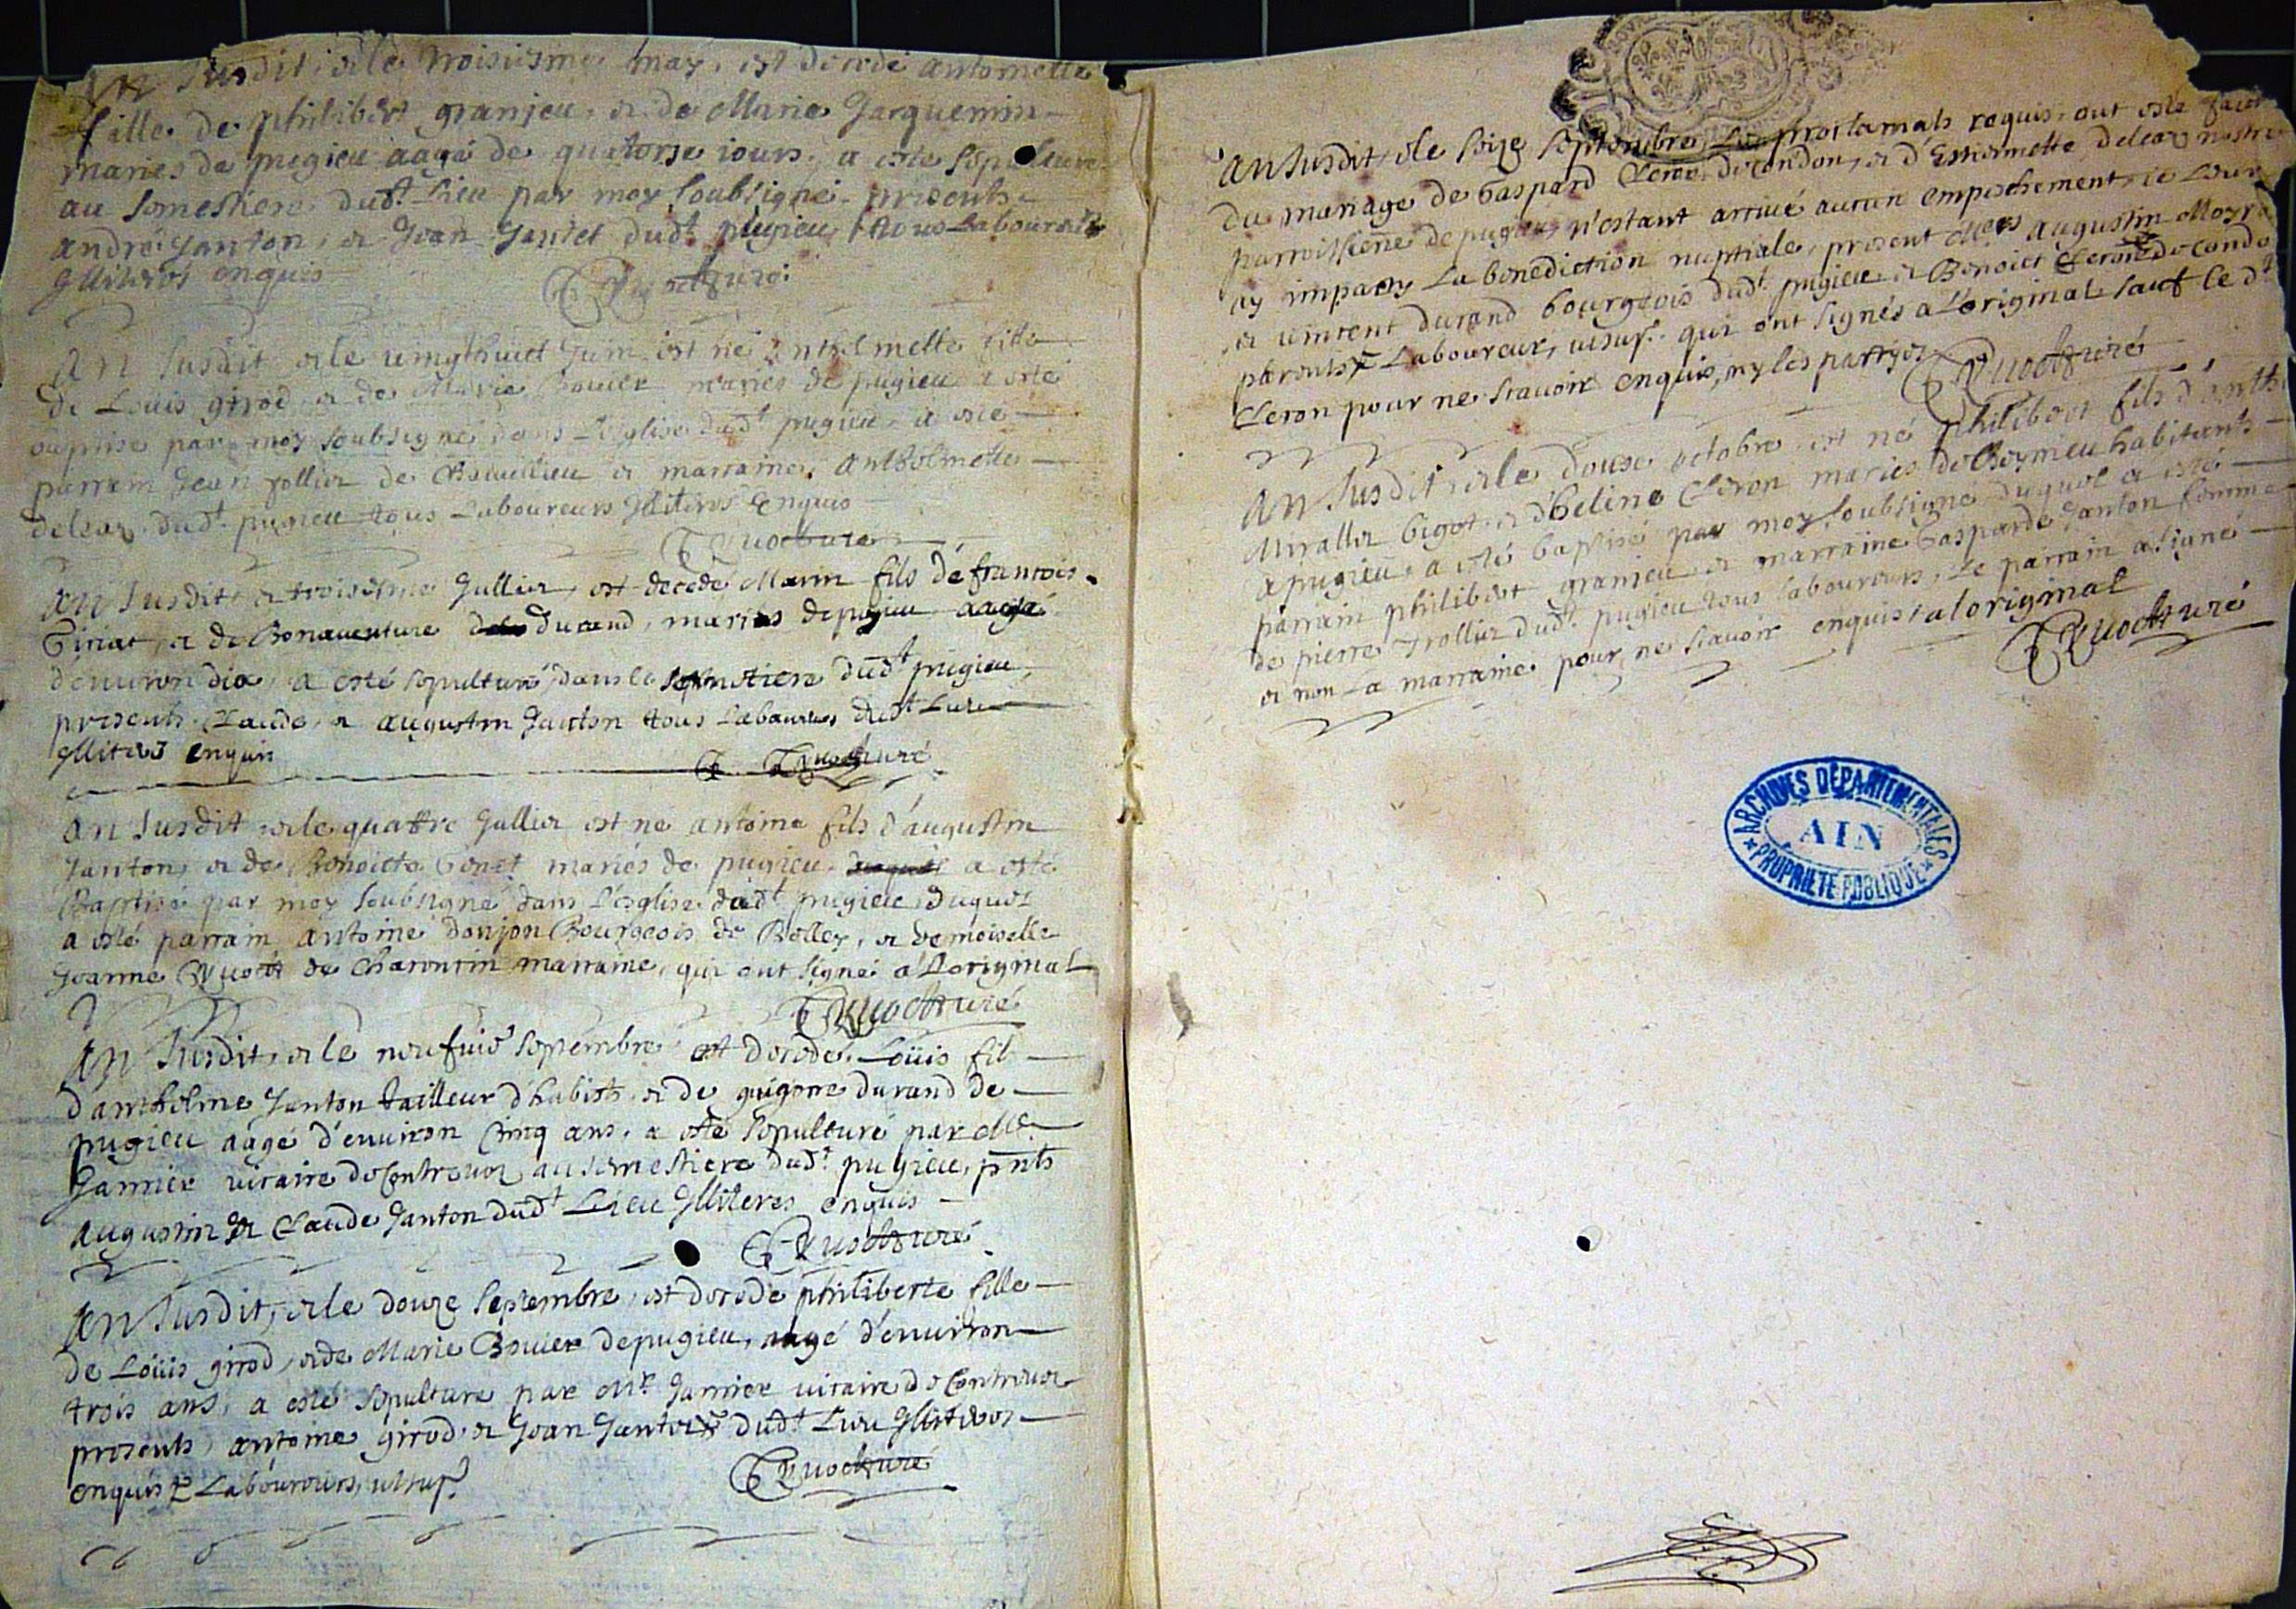 An susdit, & le troisiesme may, est decedé antoinette
fille de philibert granjeu, & de Marie Jacquemin
mariés de pugieu aagé de quatorse iours, a esté sepulturé
au semestiere dud.t Lieu par moy soubsigné, presents
andré Janton, & Jean Jantet dud.t pugieu tous Laboureurs
Illiterés enquis
Quoct curé
An susdit & le vingthuict Juin, est né Anthelmette fille
de Loüis girod & de Marie Bouier mariés de pugieu a esté
baptise par moy soubsigné dans L'eglise dud.t pugieu, a esté
parrain Jean rollier de & marraine, Anthelmette
deleaz dud.t pugieu tous Laboureurs Illiterés Enquis
Quoct curé
An susdit, & troisiesme Jullier, est decedé Marin fils de francois
Giriat, & de Bonauenture durand, mariés de pugieu aagé
d'enuiron dix, a esté sepulturé dans le semetiere dud.t pugieu,
presents Claude, & augustin Janton tous Laboureurs dud.t Lieu
Illiterés enquis
Quoct curé
An susdit & le quattre Jullier est né antoine fils d'augustin
Janton, & de Benoicte Gonet mariés de pugieu a esté
Baptisé par moy soubsigné dans L'esglise dud.t pugieu, duquel
a esté parrain antoine donjon Bourgeois de Belley, & demoiselle
Jeanne Quoct de charoncin marraine, qui ont signé a L'original
Quoct curé
An susdit, & le neufuie septembre est decedé Loüis fils
d'anthelme Janton tailleur d'habits & de guigone durand de
pugieu aagé d'enuiron Cinq ans, a esté sepulturé par M.e
Garnier vicaire de Contreuoz au semestiere dud.t pugieu, pnts
augustin & Claude Janton dud.t Lieu Illiteres enquis
Quoct curé
An susdit, & le douze septembre, est decedé philiberte fille
de Loüis girod, & de Marie Bouier de pugieu, aagé d'enuiron
trois ans, a esté sepulture par M.r Garnier vicaire de Contreuoz
presents, antoine girod & Jean Jantet dud.t Lieu Illiterés
enquis & Laboureurs, ut sup.
Quoct curé
An susdit, & le seize septembre, Les proclamats requis, ont esté faict
du mariage de Gaspard Ceron de Condon, & d'Estiennette deleaz nostre
parroissiene de pugieu, n'estant arriué aucun empeschement, ie Leur
ay imparty La benediction nuptiale, present M.es augustin Moyra
& vincent durand bourgeois dud.t pugieu & Benoict Ceron de Condo
parents & Laboureur, ut sup. qui ont signés a L'original sauf le d.t
Ceron pour ne scauoir enquis, ny les partyes
Quoct curé
An susdit, & le douse octobre est né philibert fils d'anth.
Mirallier bigot & d'heline Ceron mariés de Beymieu habitants
a pugieu, a esté baptisé par moy soubsigné duquel a esté
parrain philibert granjeu & marraine Gasparde Janton femme
de pierre trollier dud.t pugieu tous laboureurs, Le parrain a signé
& non La marraine pour ne scauoir enquis, a loriginal
Quoct curé
ARCHIVES DÉPARTEMENTALES
AIN
PROPRIÉTÉ PUBLIQUE